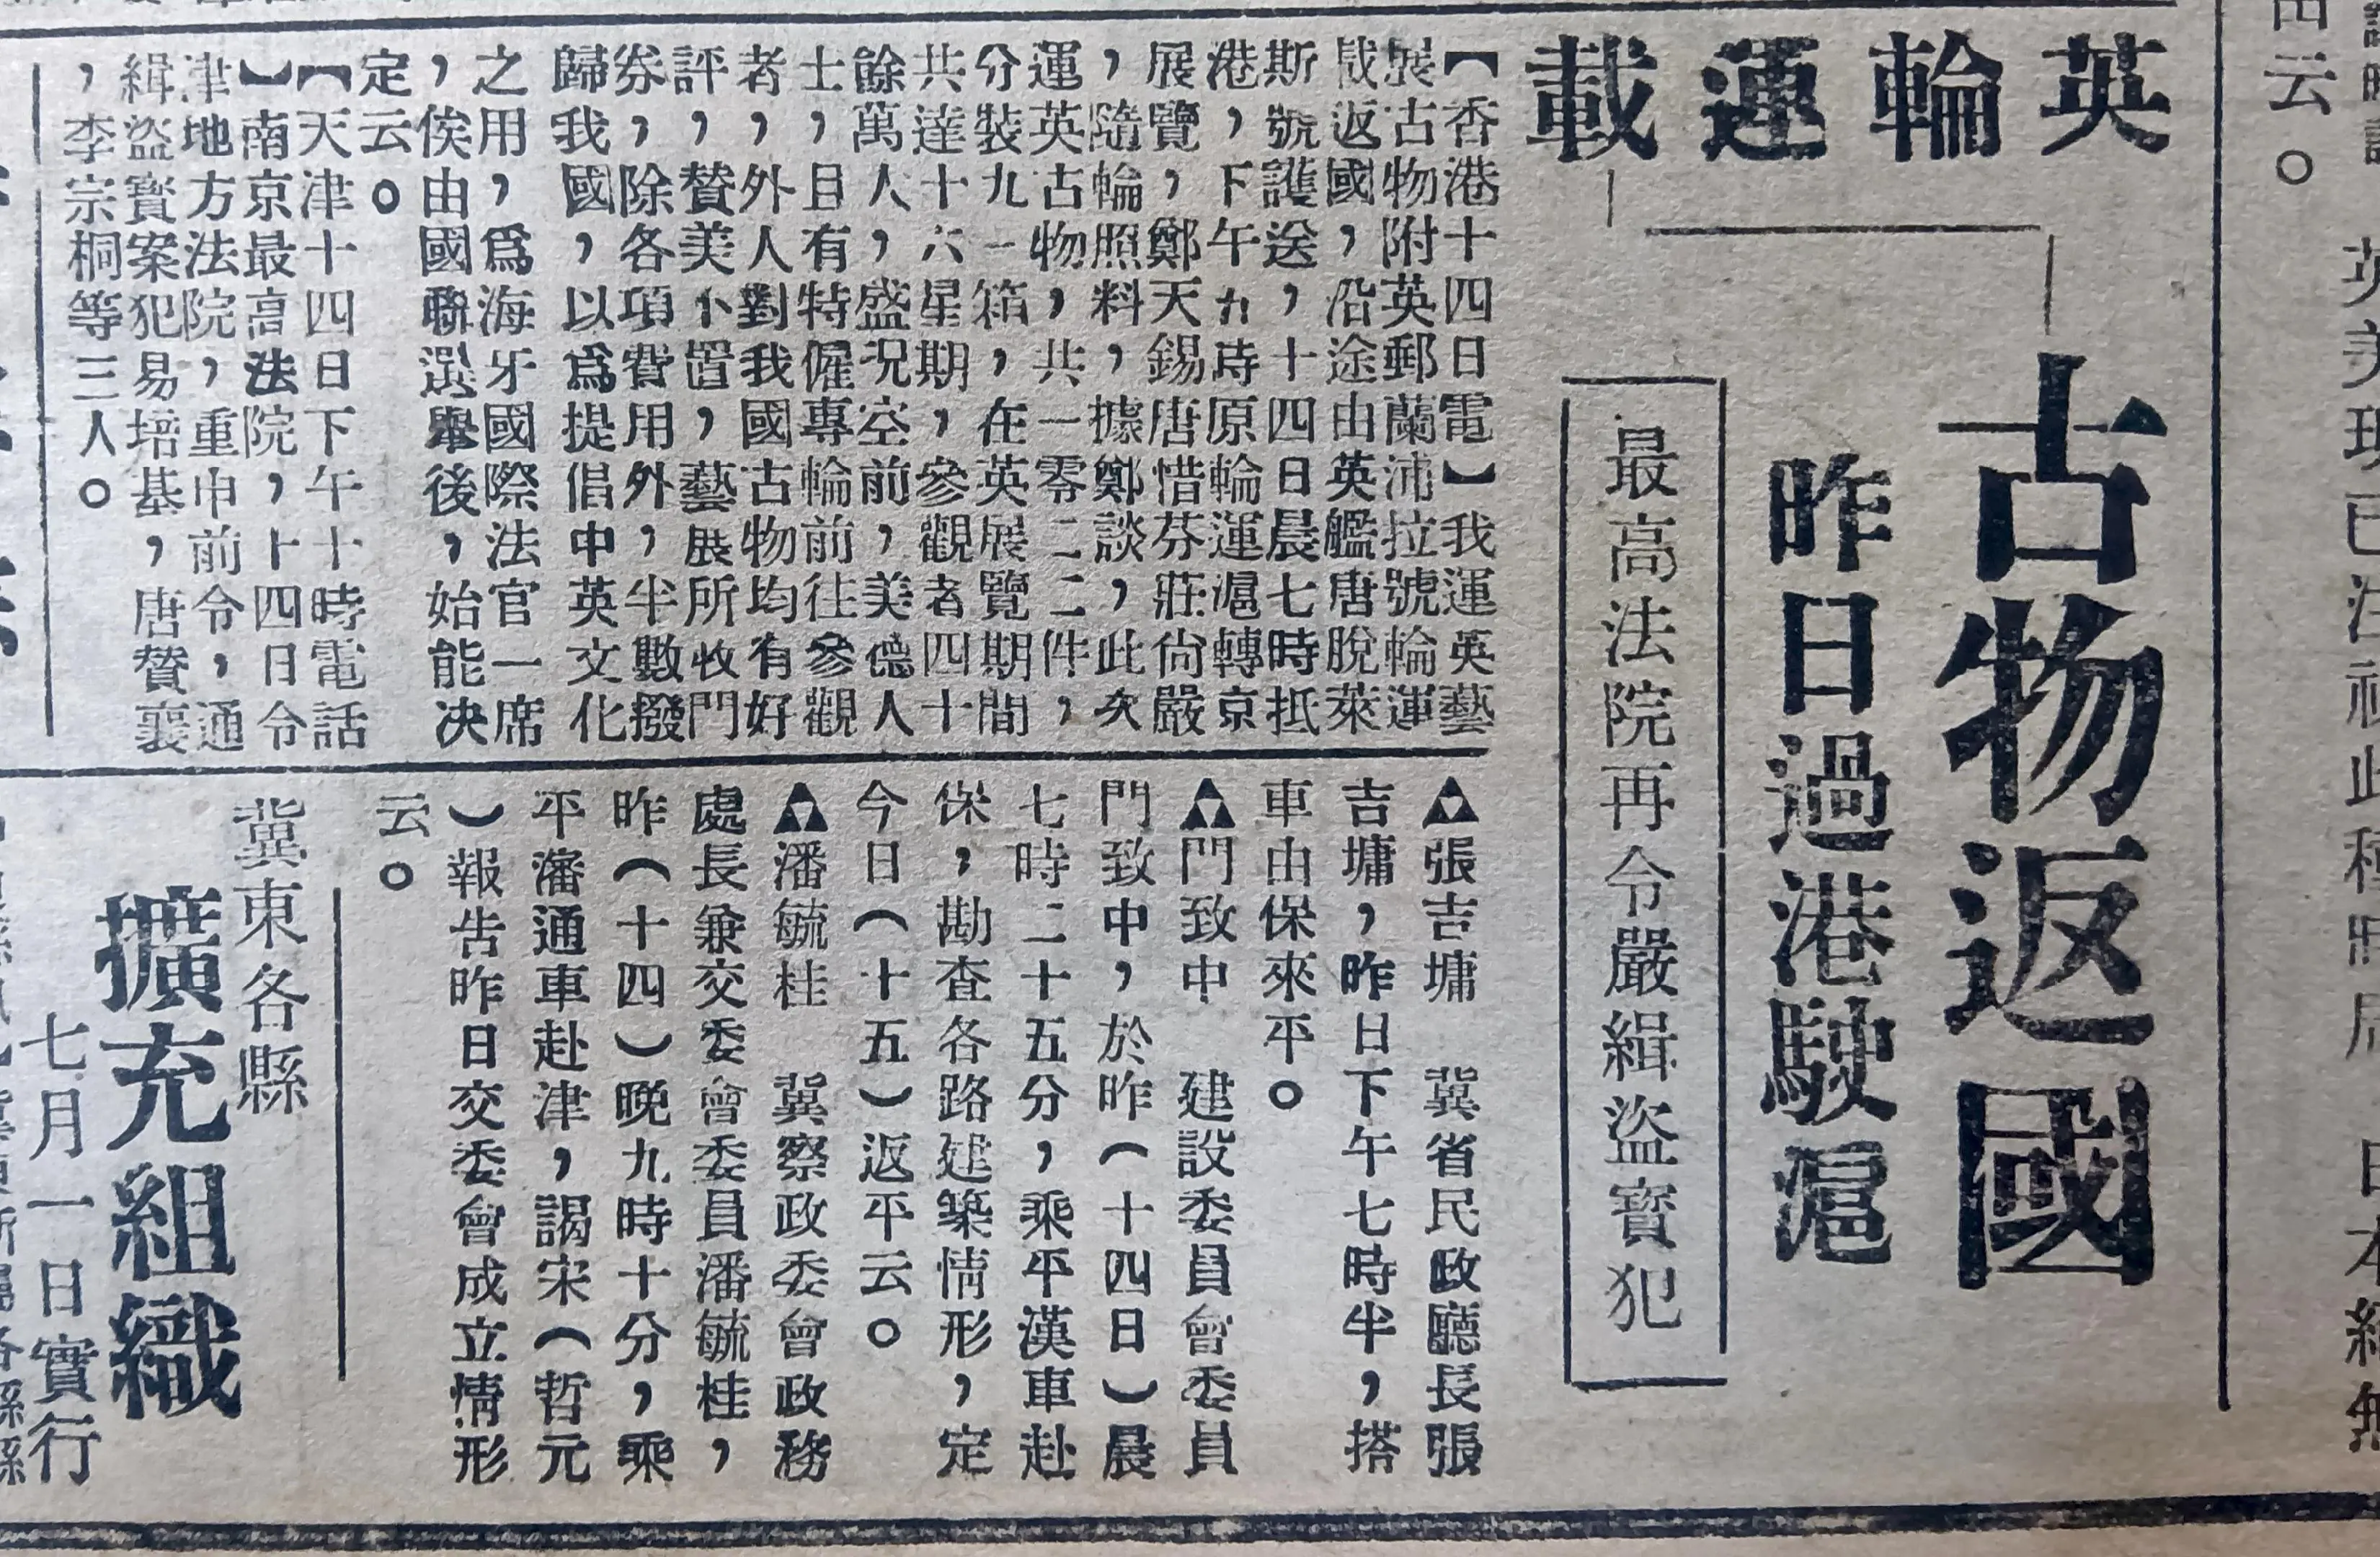 英輪運載
古物返國
昨日過港駛滬
最高法院再令嚴緝盜寶犯
【香港十四日電】我運英藝
展古物附英郵蘭浦拉號輪運
載返國，沿途由英艦唐脫萊
斯號護送，十四日晨七時抵
港，下午九時原輪運滬轉京
展覽，鄭天錫唐惜芬莊尙嚴
，隨輪照料，據鄭談，此次
運英古物，共一零二二件，
分裝九一箱，在英展覽期間
共達十六星期，參觀者四十
餘萬人，盛況空前，美德人
士，且有特僱專輪前往參觀
者，外人對我國古物均有好
評，贊美不置，藝展所收門
券，除各項費用外，半數撥
歸我國，以爲提倡中英文化
之用，爲海牙國際法官一席
，俟由國聯選舉後，始能決
定云。
【天津十四日下午十時電話
】南京最高法院，十四日令
津地方法院，重申前令，通
緝盜寳案犯易培基，唐贊襄
，李宗桐等三人。
▲張吉墉　冀省民政廳長張
吉墉，昨日下午七時半，搭
車由保來平。
▲門致中　建設委員會委員
門致中，於昨（十四日）晨
七時二十五分，乘平漢車赴
保，勘查各路建築情形，定
今日（十五）返平云。
▲潘毓桂　冀察政委會政務
處長兼交委會委員潘毓桂，
昨（十四）晚九時十分，乘
平瀋通車赴津，謁宋（哲元
）報告昨日交委會成立情形
云。
冀東各縣
擴充組織
七月一日實行